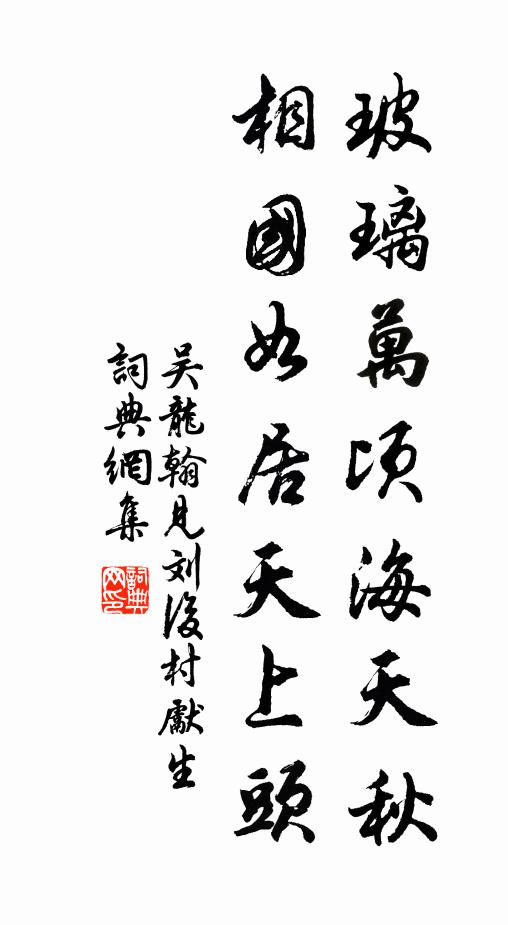 玻璃萬頃海天秋
相國如居天上頭
吴龍翰見刘後村獻生
詞典網集
詞典網印